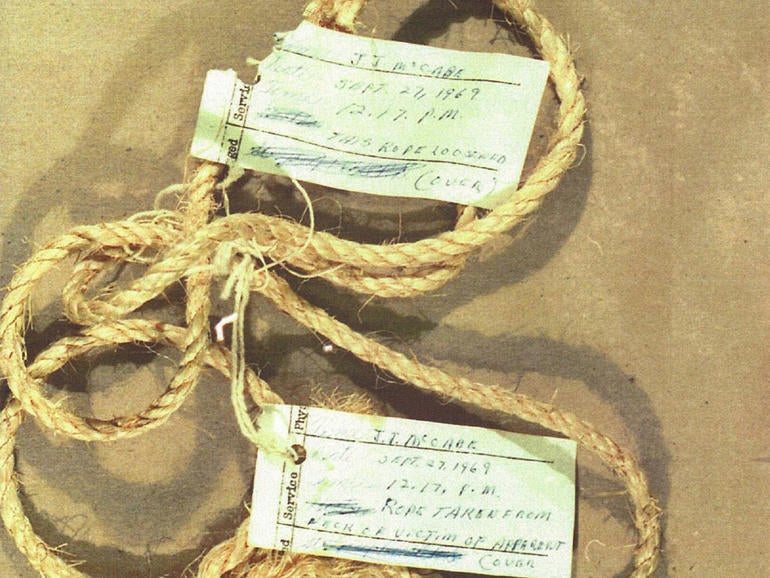 J J McCABE
SEPT. 27, 1969
12.17. P.M.
THIS ROPE LOOSENED
(OVER)
ged Servic
J.J. McCABE
SEPT. 27, 1969
12.17. P.M.
ROPE TAKEN FROM
NECK OF VICTIM OF APPARENT
COVER
d Service Phy